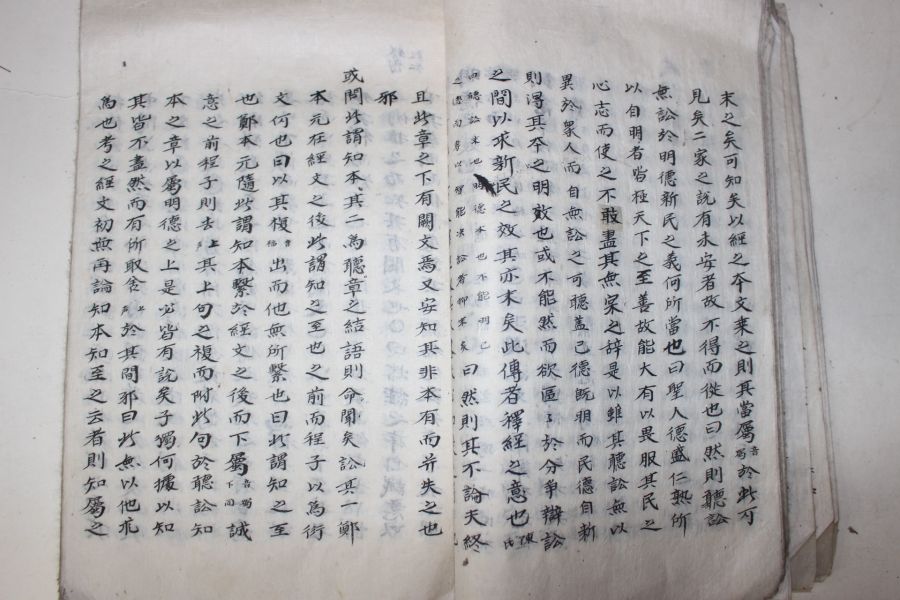 末之矣可知矣以經之本文乘之則其當屬音燭於此可
見矣二家之説有未安者故不得而從也曰然則聽訟
無訟於明德新民之義何所當也曰聖人德盛仁熟所
以自明者皆極天下之至善故能大有以畏服其民之
心志而使之不敢盡其無実之辞是以雖其聽訟無以
異於衆人而自無訟之可聽蓋己德既明而民德自新
則得其本之明效也或不能然而欲區々於分争辯訟
之間以求新民之效其亦末矣此傳者釋經之意也陳氏
曰聽訟末也明德本也不能明己
之德而專以智能决訟者抑末矣曰然則其不論夫終
且此章之下有闕文焉又安知其非本有而并失之也
邪
或問此謂知本其一爲聽訟章之結語則命聞矣其一鄭
本元在經文之後此謂知之至也之前而程子以爲衍
文何也曰以其複音福出而他無所繫也曰此謂知之至
也鄭本元隨此謂知本繫於經文之後而下屬音燭下同誠
意之前程子則去上声其上句之複而附此句於聽訟知
本之章以屬明德之上是必皆有説矣子獨何據以知
其皆不盡然而有所取舎上声於其間邪曰此無以他求
爲也考之經文初無再論知本知至之云者則知屬之